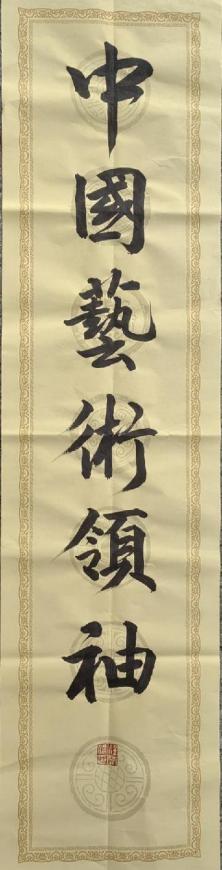 中國藝術領袖